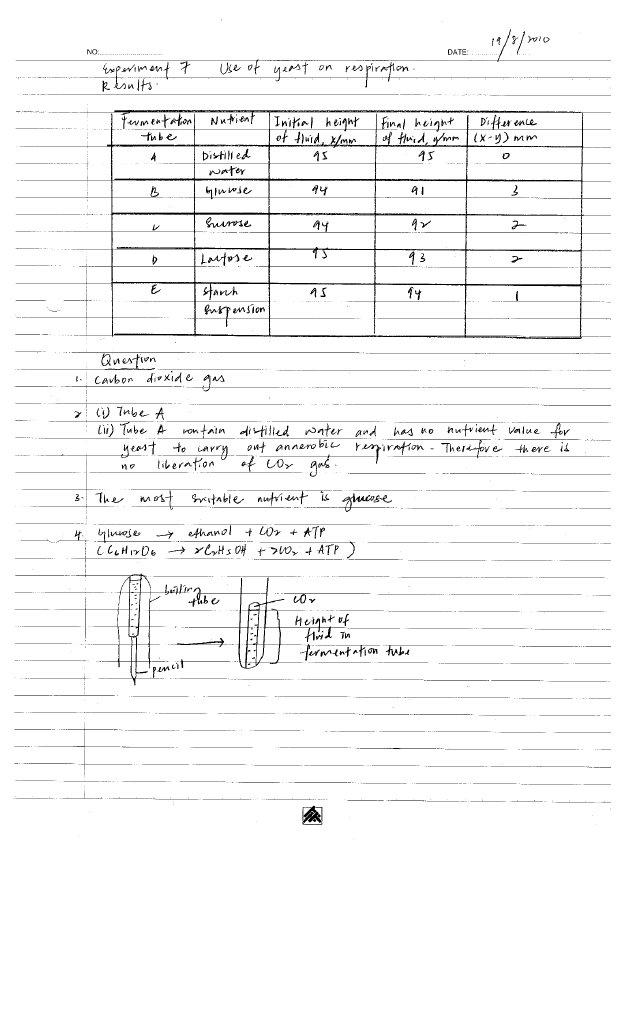 NO:
DATE: 19/8/2010
Experiment 7 Use of yeast on respiration.
Results.
Fermentation tube | Nutrient | Initial height of fluid, x/mm | Final height of fluid, y/mm | Difference (x-y) mm
A | Distilled water | 95 | 95 | 0
B | Glucose | 94 | 91 | 3
C | Sucrose | 94 | 92 | 2
D | Lactose | 95 | 93 | 2
E | Starch suspension | 95 | 94 | 1
Question
1. Carbon dioxide gas
2 (i) Tube A
(ii) Tube A contain distilled water and has no nutrient value for
yeast to carry out annerobic respiration. Therefore there is
no liberation of CO2 gas.
3. The most suitable nutrient is glucose
4. Glucose → ethanol + CO2 + ATP
(C6H12O6 → 2C2H5OH + 2CO2 + ATP)
boiling tube
pencil
CO2
Height of
fluid in
fermentation tube